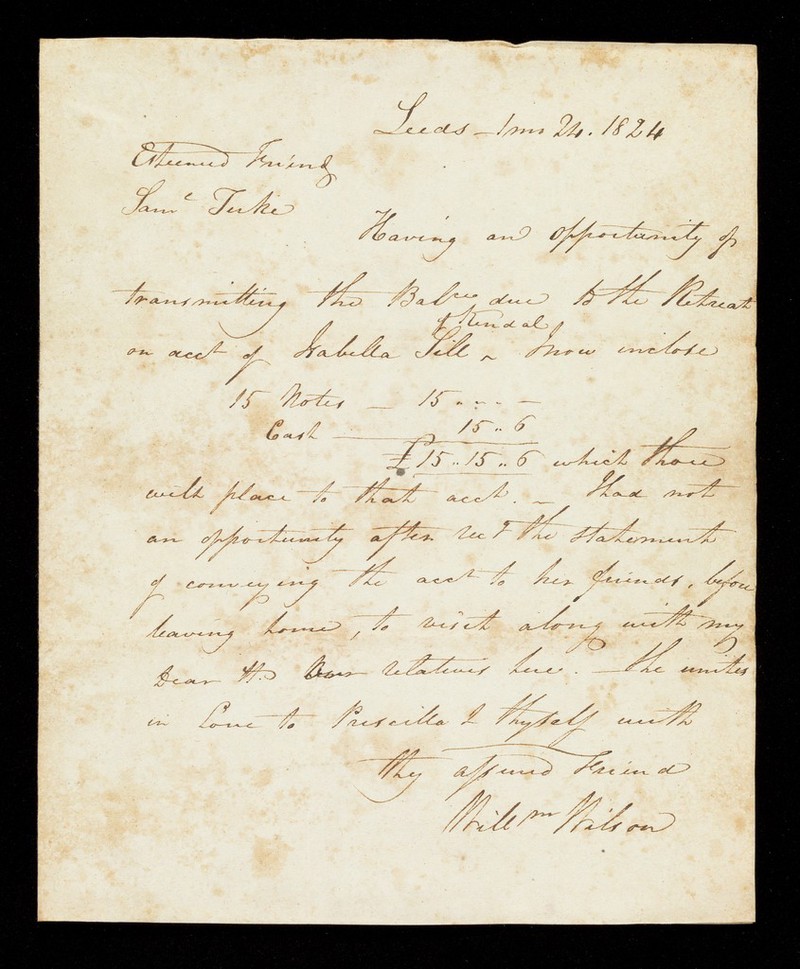 Leeds 1 mo 24. 1824
Esteemed Friend
Saml Tuke
Having an opportunity of
transmitting the Balce due to the Retreat
of Kendal
on acct of Isabella Sill, I now inclose
15 Notes — 15 " - " -
Cash — 15 " 6
£15 " 15 " 6 which thou
wilt place to that acct. — I had not
an opportunity after recg the statement
of conveying the acct to her friends, before
leaving home, to visit along with my
Dear H. our relatives here. — She unites
in Love to Priscilla & thyself with
thy assured Friend
Willm Wilson